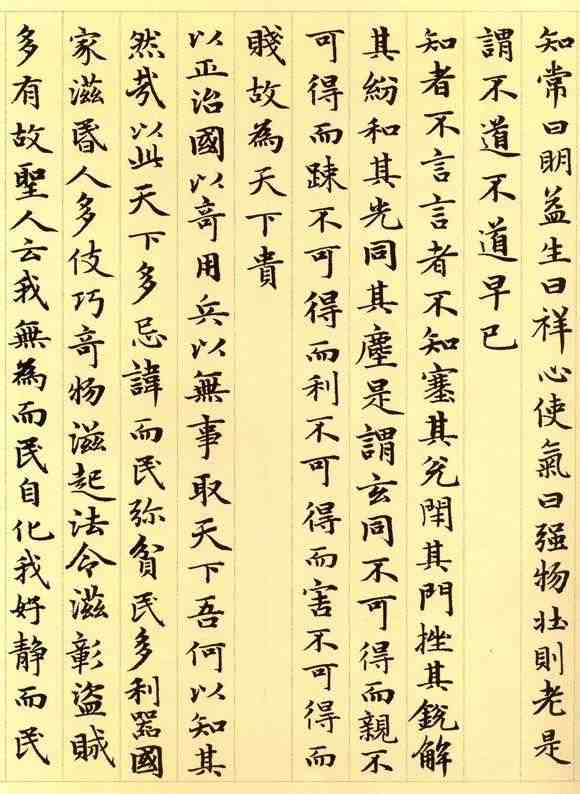 知常曰明益生曰祥心使氣曰强物壯則老是
謂不道不道早已
知者不言言者不知塞其兌閉其門挫其銳解
其紛和其光同其塵是謂玄同不可得而親不
可得而踈不可得而利不可得而害不可得而
賤故為天下貴
以正治國以奇用兵以無事取天下吾何以知其
然㢤以此天下多忌諱而民弥貧民多利器國
家滋昬人多伎巧奇物滋起法令滋彰盜賊
多有故聖人云我無為而民自化我好静而民